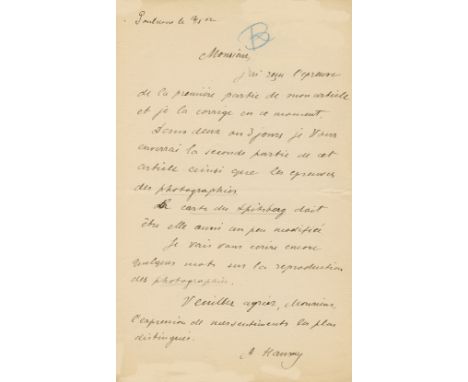 le
B
Monsieur,
j'ai reçu l'epreuve
de la première partie de mon article
et je la corrige en ce moment.
Dans deux ou 3 jours je Vous
enverrai la seconde partie de cet
article ainsi que les epreuves
des photographies
carte du Spitsberg doit
être elle aussi un peu modifiée
Je vais vous ecrire encore
quelques mots sur la reproduction
des photographies.
Veuillez agréer, Monsieur,
l'expression de sentiments les plus
distingués.
A